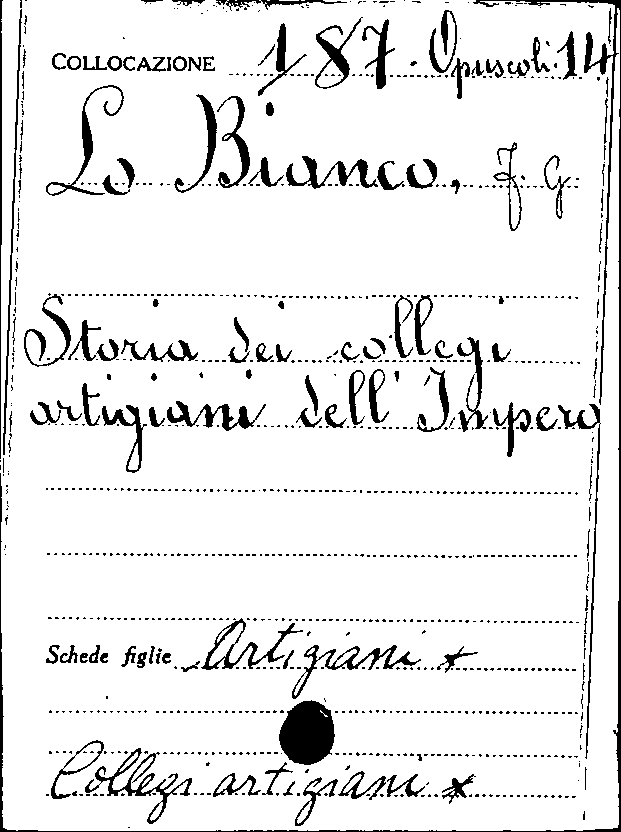 COLLOCAZIONE 187. Opuscoli. 14
Lo Bianco, F. G.
Storia dei collegi
artigiani dell' Impero
Schede figlie Artigiani x
Collegi artigiani x